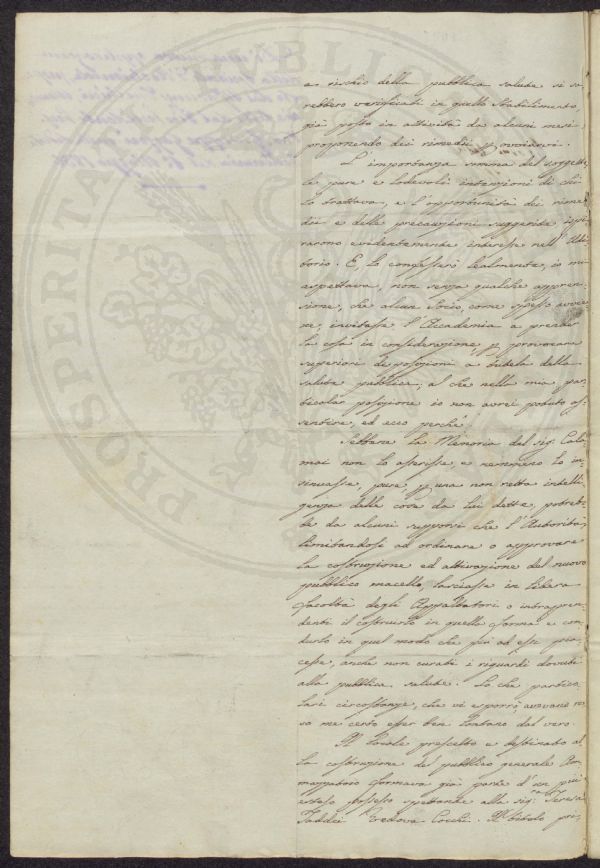 e rischio della pubblica salute si sa-
rebbero verificati in quello Stabilimento
già posto in attività da alcuni mesi
proponendo dei rimedii p ovviarvi.
L'importanza somma del soggetto
le pure e lodevoli intenzioni di chi
lo trattava, e l'opportunità dei rime
dii e delle precauzioni suggerite ispi
rarono evidentemente interesse nell'Udi
torio. E, lo confesserò lealmente, io mi
aspettava, non senza qualche appren-
sione, che alcun Socio, come spesso avvie
ne, invitasse l'Accademia a prender
la cosa in considerazione, p provocare
superiori disposizioni a tutela della
salute pubblica; al che nella mia par
ticolar posizione io non avrei potuto as
sentire, ed ecco perchè.
Sebbene la Memoria del sig. Cala
mai non lo asserisse, e nemmeno lo in
sinuasse, pure, p una non retta intelli
genza delle cose da lui dette, potreb
be da alcuni supporsi che l'Autorità
limitandosi ad ordinare o approvare
la costruzione ed attivazione del nuovo
pubblico macello, lasciasse in libera
facoltà degli Appaltatori o intrapren
denti il costruirlo in quella forma e con
durlo in quel modo che più ad essi pia
cesse, anche non curati i riguardi dovuti
alla pubblica salute. Lo che partico
lari circostanze, che vi esporrò, avevano re
so me certo esser ben lontano dal vero
Il locale prescelto e destinato al
la costruzione del pubblico generale Am
mazzatoio formava già parte d'un più
esteso possesso spettante alla sigra Teresa
Taddei Vedova Cocchi. Il titolo pri
PROSPERITA
PUBLIC